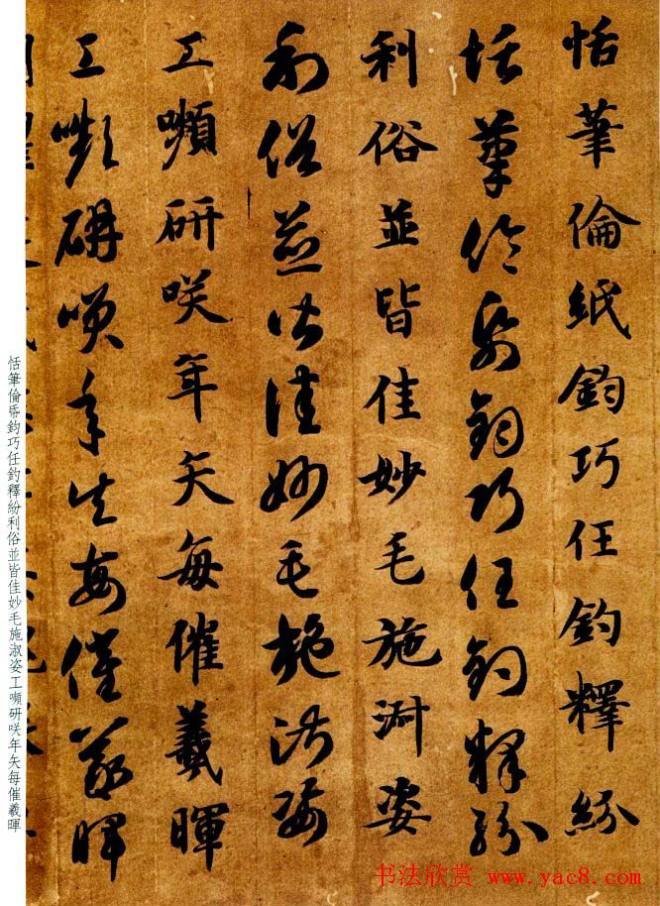 恬筆倫紙鈞巧任釣釋紛
恬筆倫帋鈞巧任釣釋紛
利俗並皆佳妙毛施淑姿
利俗並皆佳妙毛施淑姿
工嚬研咲年矢每催羲暉
工嚬研咲年矢每催羲暉
恬筆倫帋鈞巧任釣釋紛利俗並皆佳妙毛施淑姿工嚬研咲年矢每催羲暉
书法欣赏 www.yac8.com